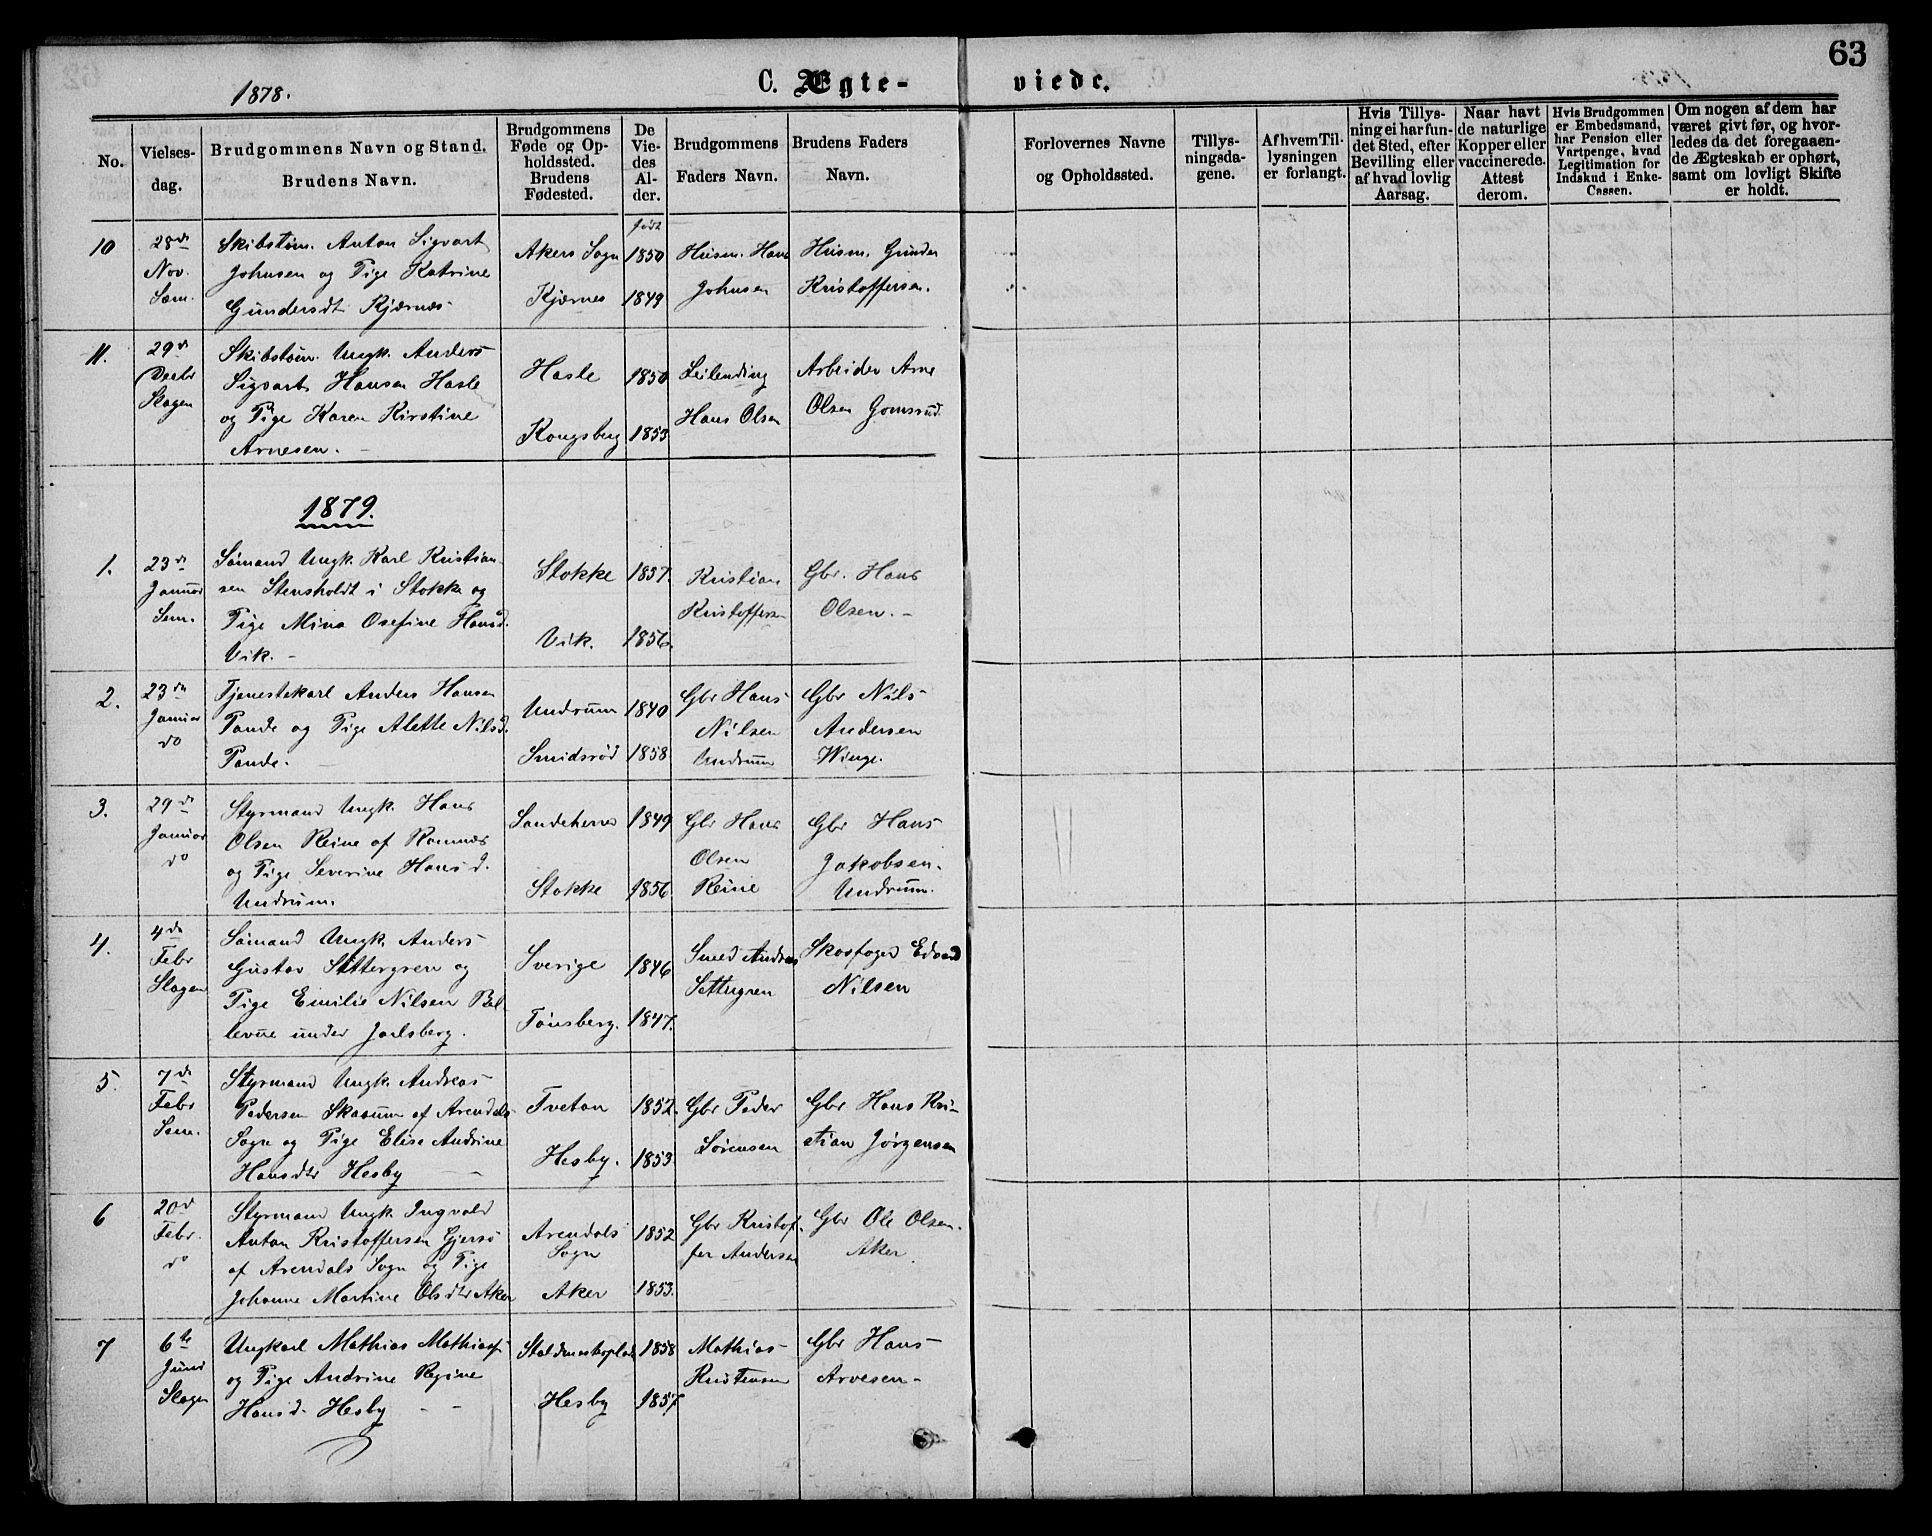 63
1878.
C. Ægte- viede.
No.
Vielses-
dag.
Brudgommens Navn og Stand.
Brudens Navn.
Brudgommens
Føde og Op-
holdssted.
Brudens
Fødested.
De
Vie-
des
Al-
der.
Brudgommens
Faders Navn.
Brudens Faders
Navn.
Forlovernes Navne
og Opholdssted.
Tillys-
ningsda-
gene.
Af hvem Til-
lysningen
er forlangt.
Hvis Tillys-
ning ei har fun-
det Sted, efter
Bevilling eller
af hvad lovlig
Aarsag.
Naar havt
de naturlige
Kopper eller
vaccinerede.
Attest
derom.
Hvis Brudgommen
er Embedsmand,
har Pension eller
Vartpenge, hvad
Legitimation for
Indskud i Enke-
Cassen.
Om nogen af dem har
været givt før, og hvor-
ledes da det foregaaen-
de Ægteskab er ophørt,
samt om lovligt Skifte
er holdt.
10
28de
Nov.
Sem.
Skibstøm. Anton Sigvart
Johnsen og Pige Katrine
Gundersdt Kjærnes
Akers Sogn
Kjærnes
født
1850
1849
Husm. Hans
Johnsen
Husm. Gunder
Kristoffersen.
11.
29de
Decbr
Slagen
Skibstøm. Ungk. Anders
Sigvart Hansen Hasle
og Pige Karen Kirstine
Arnesen. -
Hasle
Kongsberg
1850
1853
Leilending
Hans Olsen
Arbeider Arne
Olsen Gomsrud.
1879.
1.
23de
Januar
Sem.
Sømand Ungk. Karl Kristian-
sen Stensholdt i Stokke og
Pige Mina Osefine Hansd.
Vik. -
Stokke
Vik.
1857.
1856.
Kristian
Kristoffersen
Gbr. Hans
Olsen. -
2.
23de
Januar
do
Tjenestekarl Anders Hansen
Pande og Pige Alette Nilsd.
Pande. -
Undrum
Smidsrød
1840
1858
Gbr Hans
Nilsen
Undrum
Gbr Nils
Andersen
Winge.
3.
29de
Januar
do
Styrmand Ungk. Hans
Olsen Reine af Ramnæs
og Pige Severine Hansd.
Undrum.
Sandeherred
Stokke
1849
1856.
Gbr Hans
Olsen
Reine
Gbr Hans
Jakobsen
Undrum.
4.
4de
Febr
Slagen
Sømand Ungk. Anders
Gustav Settergren og
Pige Emilie Nilsen Bel-
levue under Jarlsberg.
Sverige
Tønsberg.
1846
1847.
Smed Andreas
Settergren
Skovfoged Edvard
Nilsen
5.
7de
Febr
Sem.
Styrmand Ungk. Andreas
Pedersen Skaoum af Arendals
Sogn og Pige Elise Andrine
Hansdtr Hesby -
Tveton
Hesby.
1852.
1853.
Gbr Peder
Sørensen
Gbr Hans Kri-
stian Jørgensen
6
20de
Febr.
do
Styrmand Ungk Ingvald
Anton Kristoffersen Gjersø
af Arendals Sogn og Pige
Johanne Martine Olsdtr Aker
Arendals
Sogn
Aker
1852
1853.
Gbr Kristof-
fer Andersen
Gbr Ole Olsen.
Aker
7
6te
Juni
Slagen
Ungkarl Mathias Mathias.
og Pige Andrine Regine
Hansd. Hesby - -
Hesby
1858
1857.
Mathias
Kristensen
Gbr Hans
Arvesen -